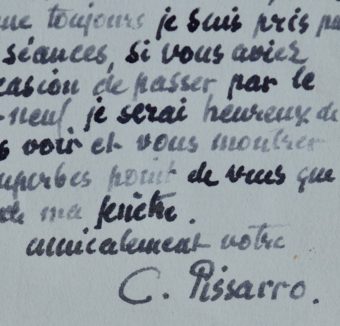 ue toujours je suis pris pa
séances, si vous aviez
casion de passer par le
-neuf je serai heureux de
s voir et vous montrer
uperbes point de vues que
de ma fenêtre.
amicalement votre
C. Pissarro.